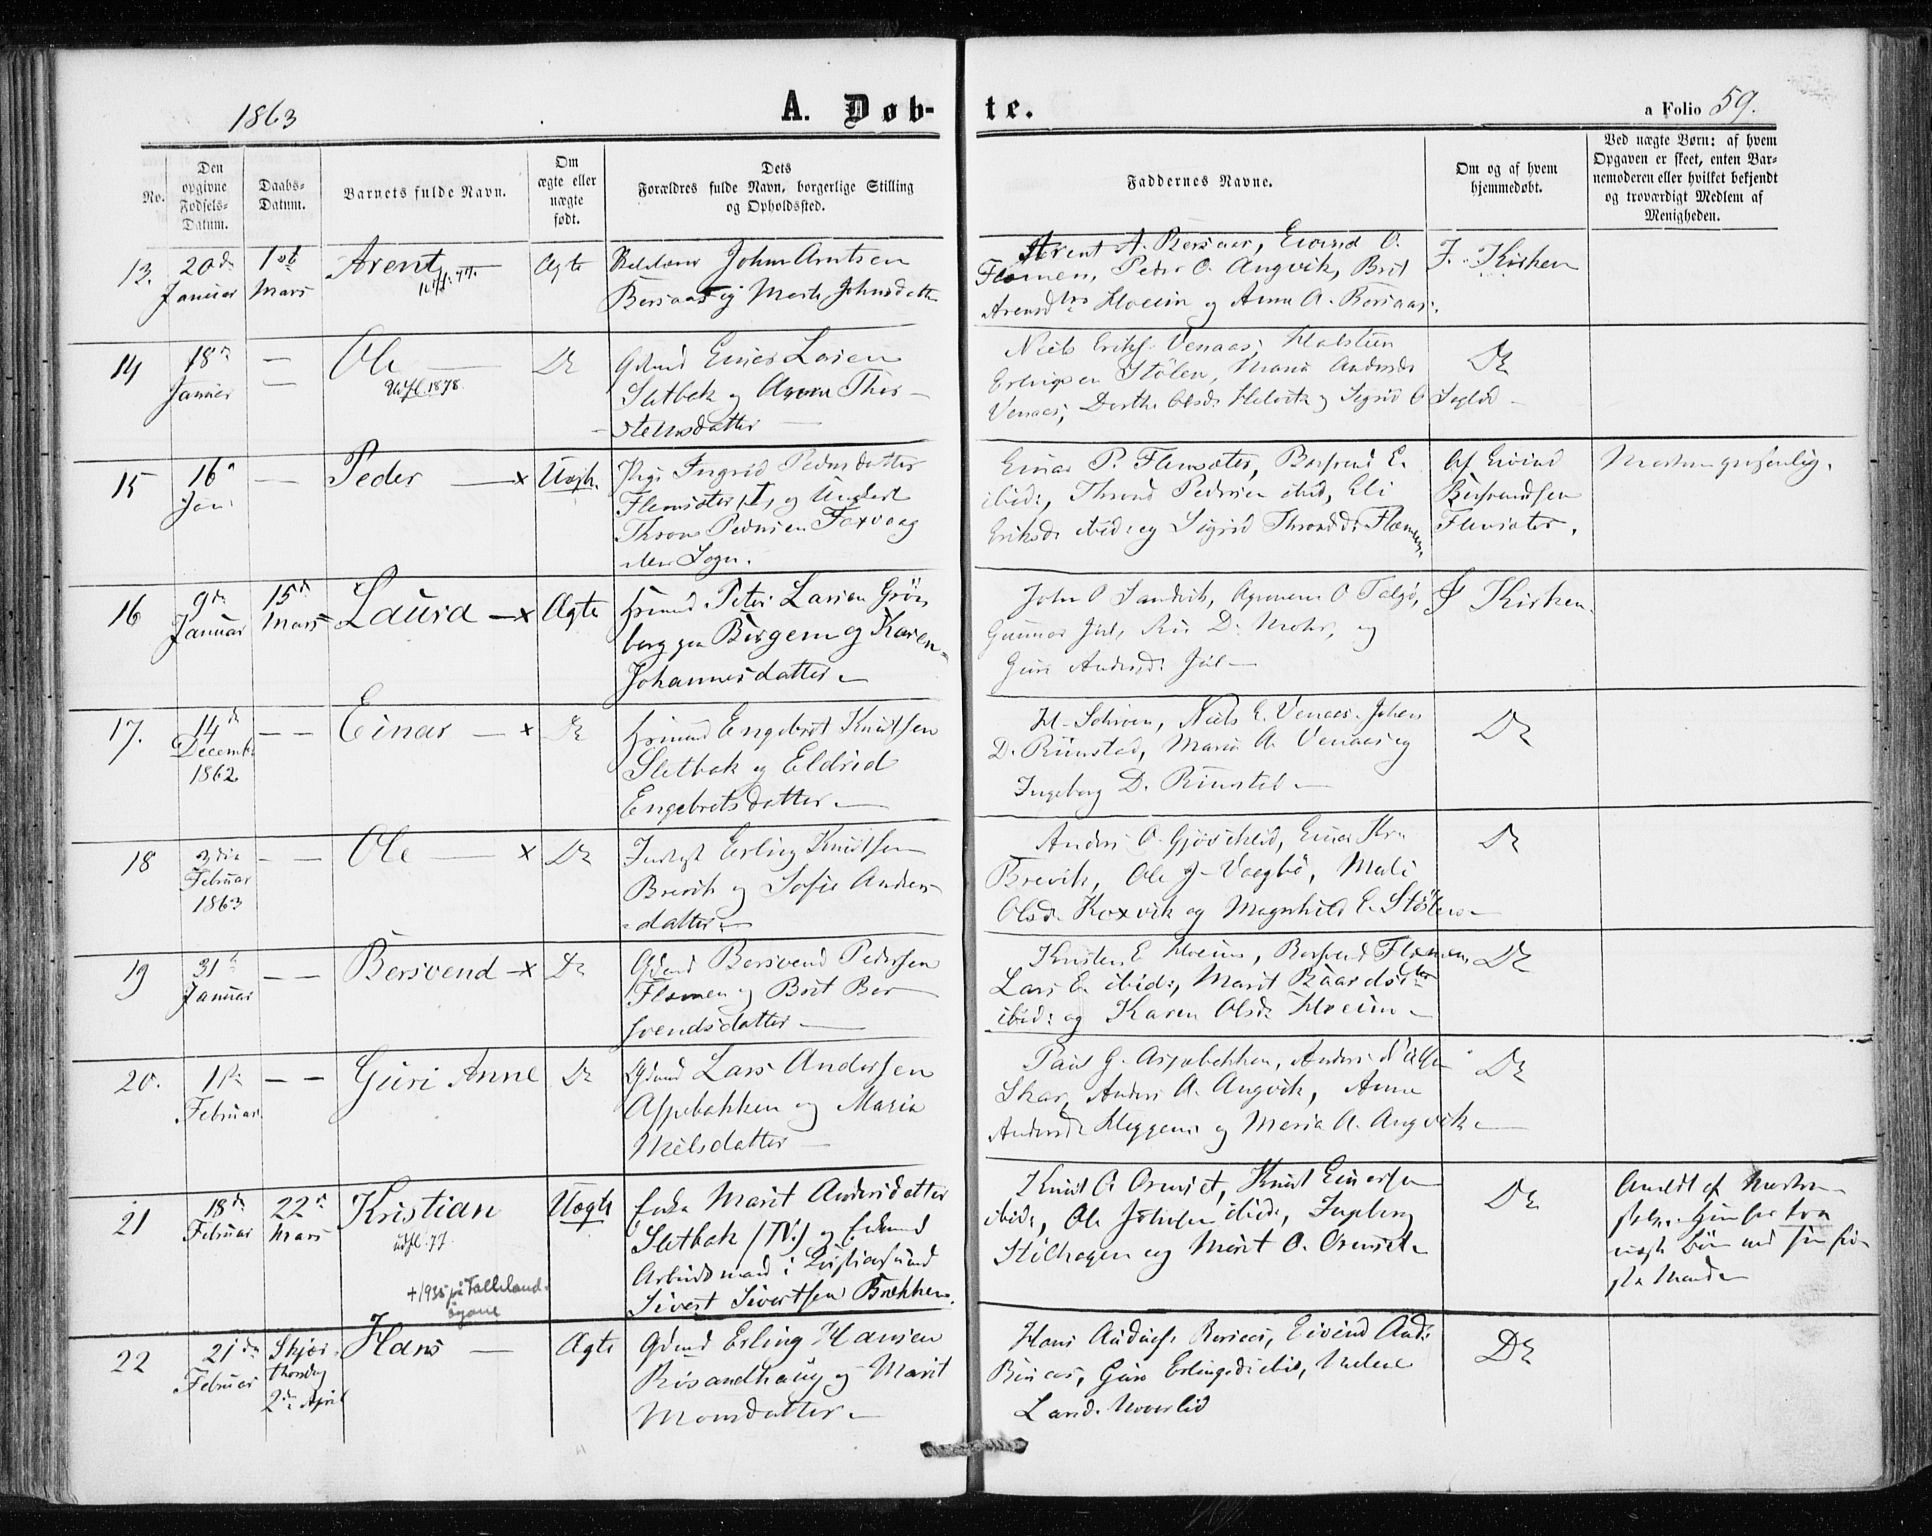 1863
A. Døb-
te.
a Folio 59.
No.
Den opgivne Fødsels-Datum.
Daabs-Datum.
Barnets fulde Navn.
Om ægte eller nægte født.
Dets Forældres fulde Navn, borgerlige Stilling og Opholdssted.
Faddernes Navne.
Om og af hvem hjemmedøbt.
Ved nægte Børn: af hvem Opgaven er skeet, enten Barnemoderen eller hvilket bekjendt og troværdigt Medlem af Menigheden.
13. 20de Januar
1ste Mars
Arent
Ægte
John Arntsen
Bersaas og Marte Johnsdatter
Arent A. Bersaas, Eivind O.
Flemen, Peder O. Angvik, Brit
Arensd Hoeim og Anne A. Bersaas.
I Kirken
14 18de Januar
— —
Ole
Udfl. 1878.
Do
Gdmd Einar Larsen
Sletbak og Anne Thor-
steinsdatter
Niels Eriks. Venaas, Halstein
Erlingsen Stølen, Maria Andersd
Venaas, Dorthe Olsd. Helvik og Sigrid O
Do
15 16 Jan.
—
Peder — x
Uægte.
Pige Ingrid Pedersdatter
Flemsæter (I) og Ungkarl
Thron Pedersen Foxvaag
Einar P. Flemsæter, Bersvend E.
ibid:, Thrond Pedersen ibid, Eli
Eriksd. ibid: og Sigrid Throndsd. Flemen.
Af Eivind
Bersvendsen
Flemsæter.
16 9de Januar
15de Mars
Laura — x
Ægte
Peter Larsen Grön
berg paa Bergem og Karen
Johannesdatter —
John O Sandvik, O Talgö,
Gunnar Jül, D. Mohr, og
Guri Andersd. Jül —
I Kirken.
17. 14de December 1862
— —
Einar — x
Do
Engebret Knutsen
Sletbak og Eldrid
Engebretsdatter —
H. Schroen, Niels E. Venaas, Johan
D. Rimstad, Maria A. Venaas og
Ingeborg D. Rimstad —
Do
18 3die Februar 1863
— —
Ole — x
Do
Erling Knutsen
Brevik og Sofie Anders-
datter —
Anders O. Gjøvikeid, Einar Kn.
Brevik, Ole J. Vaagbö, Mali
Olsd. Koxvik og Magnhild E. Stölen —
Do
19 31te Januar
— —
Bersvend — x
Do
Gdmd Bersvend Pedersen
Flemen og Brit Ber-
svendsdatter —
E Hoeim, Bersvend Flemen,
Lars E. ibid:, Marit Baardsdtr
ibid: og Karen Olsd. Hoeim —
Do
20. 1ste Februar.
— —
Guri Anne
Do
Gdmd Lars Andersen
Aspebakken og Maria
Nielsdatter —
Paul G. Aspebakken, Anders
Skar, Anders A. Angvik, Anne
Andersd. Heggem og Maria A. Angvik —
Do
21 18de Februar
22de Mars
Kristian
udfl. 77.
+1935 på Falkland-
öyane
Uægte
Enke Marit Andersdatter
Sletbak (IV) og Enkemd
Arbeidsmand i Kristiansund
Sivert Sivertsen Brekken.
Knut O. Ormset, Knut Einarsen
ibid:, Ole Johnsen ibid:, Ingeborg
Stölhagen og Marit O. Ormset —
Do
Anmeldt af Moderen
selv. Hun har tra
uægte Børn med sin før-
ste Mand —
22 21de Februar
Skjær-
thorsdag
2de April
Hans —
Ægte
Gdmd Erling Hansen
Risandhaug og Marit
Monsdatter —
Hans Bersaas, Eivind And.
Bersaas, Guri Erlingsd. ibid, Malene
Larsd.
Do